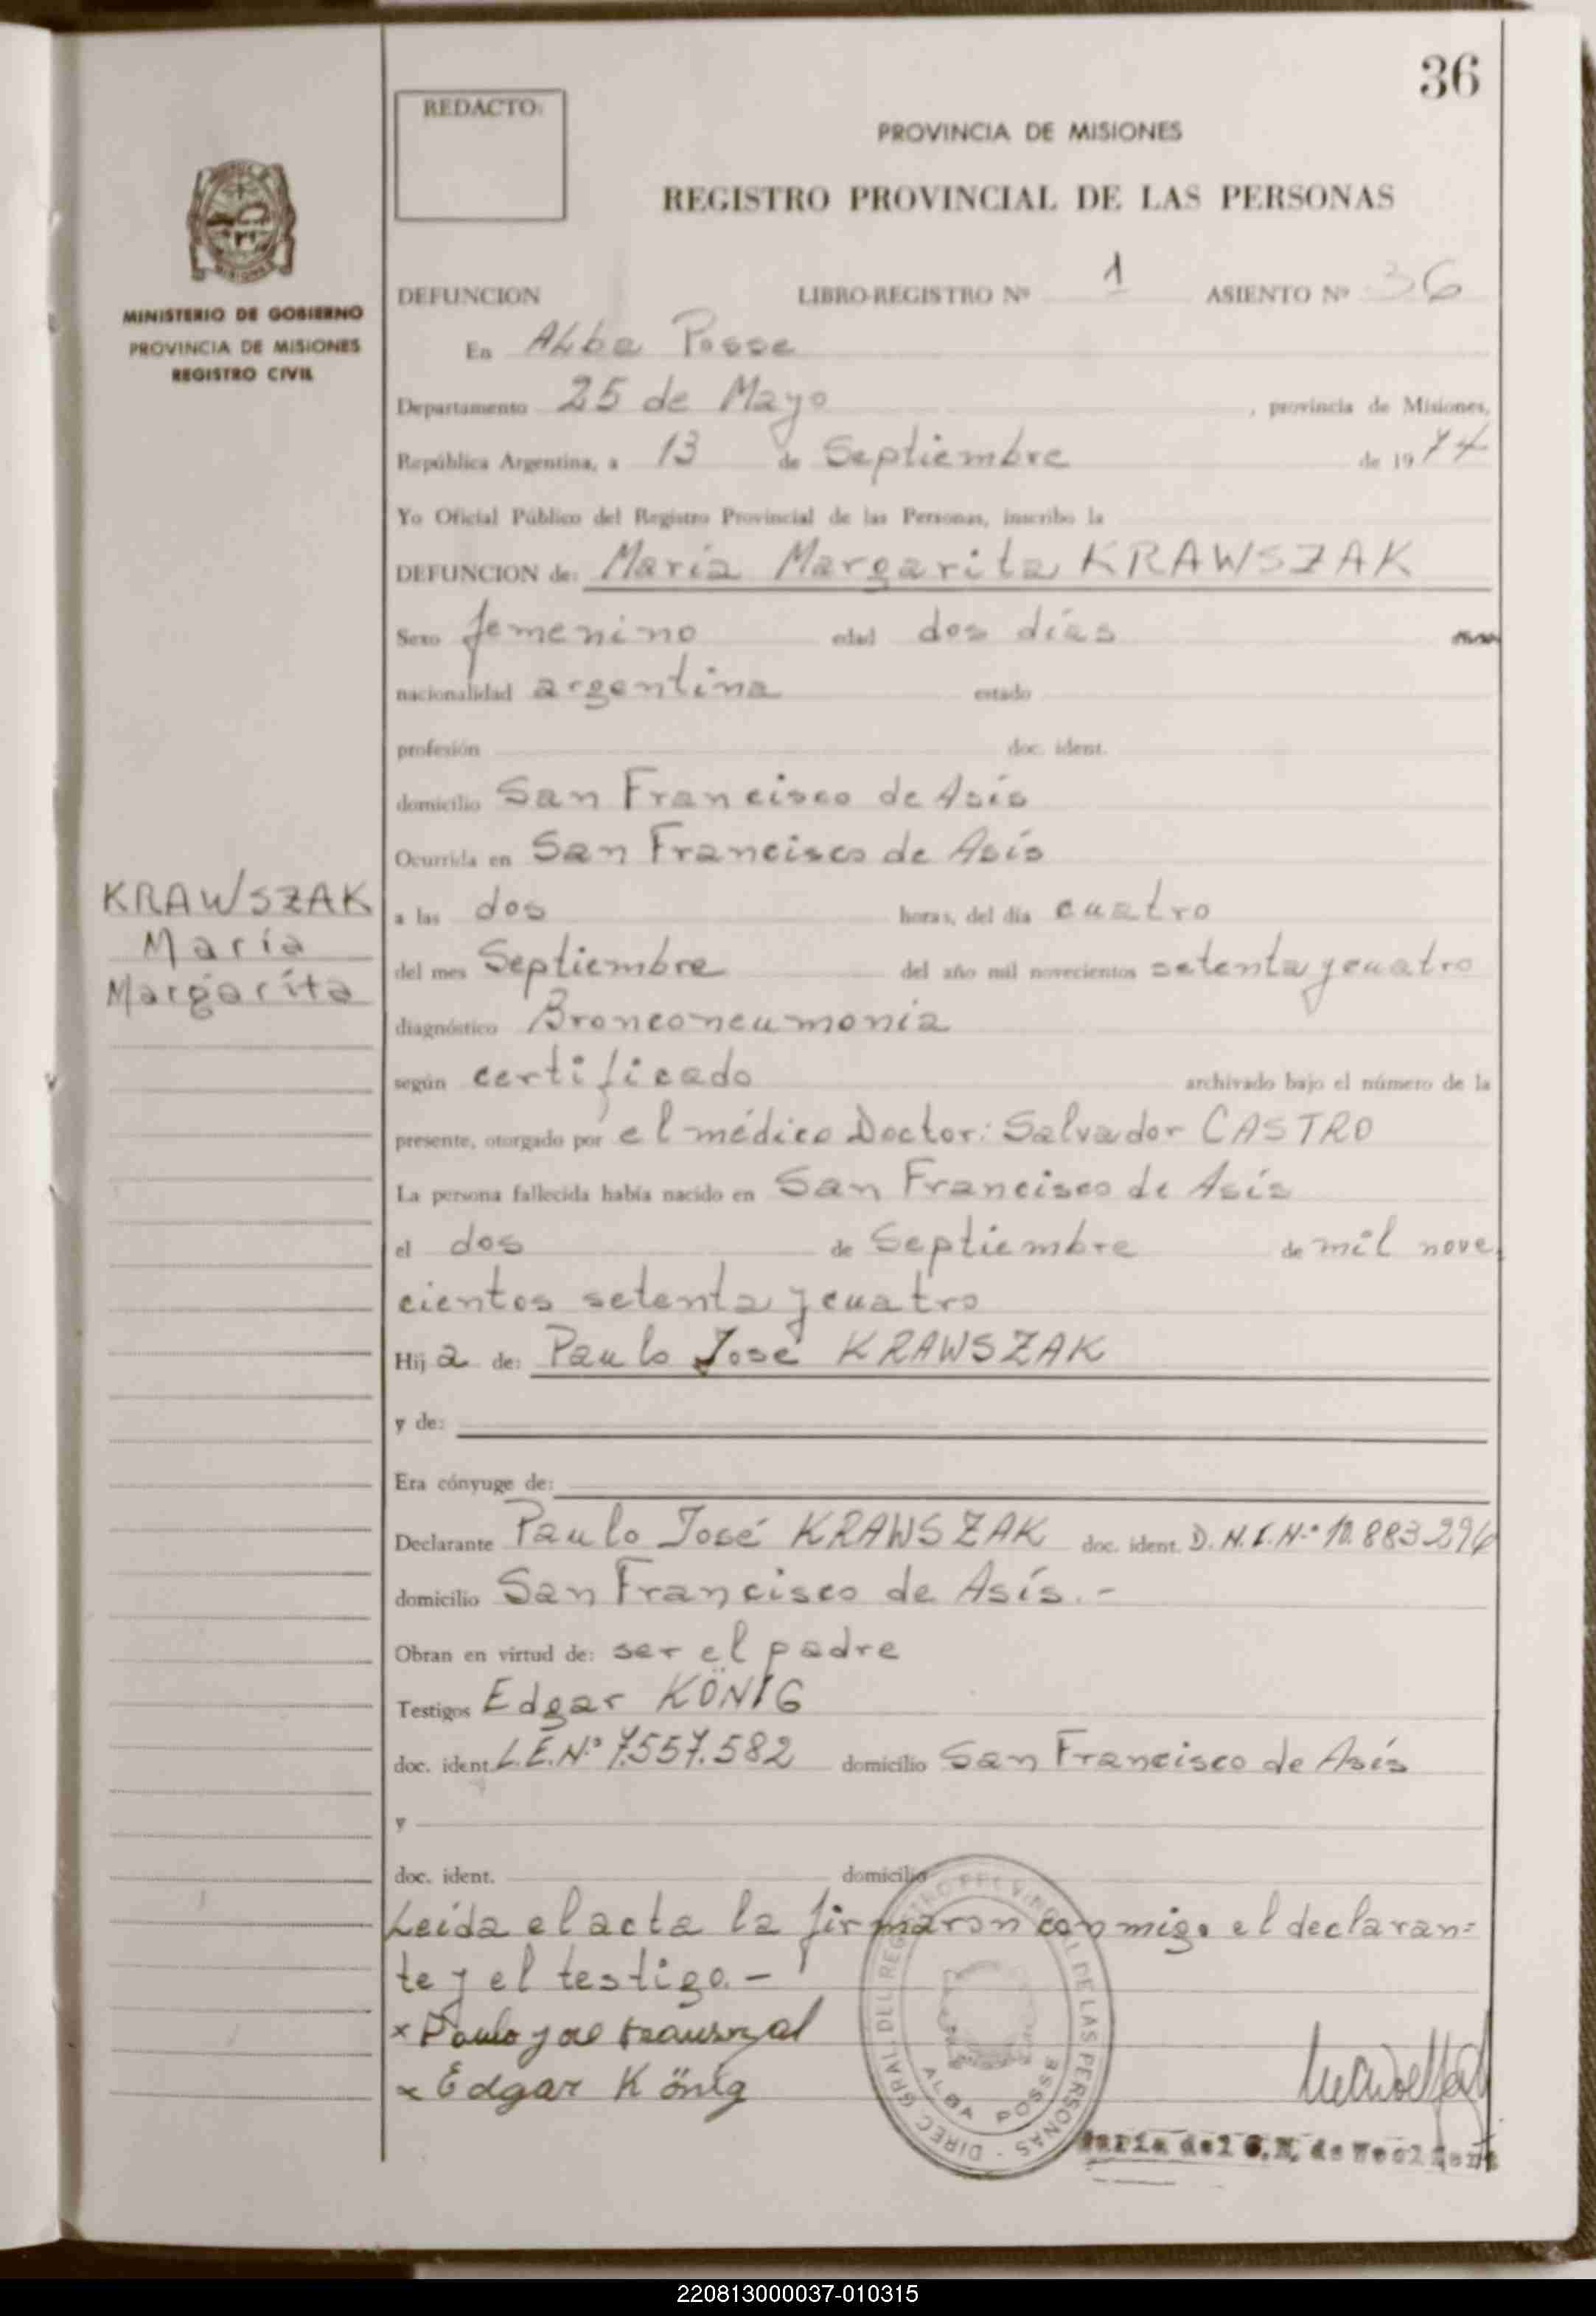 36
REDACTO:
PROVINCIA DE MISIONES
REGISTRO PROVINCIAL DE LAS PERSONAS
MINISTERIO DE GOBIERNO
PROVINCIA DE MISIONES
REGISTRO CIVIL
DEFUNCION LIBRO-REGISTRO Nº 1 ASIENTO Nº 36
En Alba Posse
Departamento 25 de Mayo , provincia de Misiones,
República Argentina, a 13 de Septiembre de 1974
Yo Oficial Público del Registro Provincial de las Personas, inscribo la
DEFUNCION de: María Margarita KRAWSZAK
Sexo femenino edad dos días
nacionalidad argentina estado
profesión doc. ident.
domicilio San Francisco de Asís
Ocurrida en San Francisco de Asís
KRAWSZAK
María
Margarita
a las dos horas, del día cuatro
del mes Septiembre del año mil novecientos setenta y cuatro
diagnóstico Bronconeumonía
según certificado archivado bajo el número de la
presente, otorgado por el médico Doctor: Salvador CASTRO
La persona fallecida había nacido en San Francisco de Asís
el dos de Septiembre de mil nove
cientos setenta y cuatro
Hija de: Paulo José KRAWSZAK
y de:
Era cónyuge de:
Declarante Paulo José KRAWSZAK doc. ident. D.N.I.Nº 10.883.294
domicilio San Francisco de Asís.-
Obran en virtud de: ser el padre
Testigos Edgar KÖNIG
doc. ident. L.E.Nº 7.557.582 domicilio San Francisco de Asís
y
doc. ident. domicilio
Leída el acta la firmaron conmigo el declaran=
te y el testigo.-
x Paulo
x Edgar König
DIREC. GRAL DEL REGISTRO PROVINCIAL DE LAS PERSONAS -
ALBA POSSE
María del
220813000037-010315